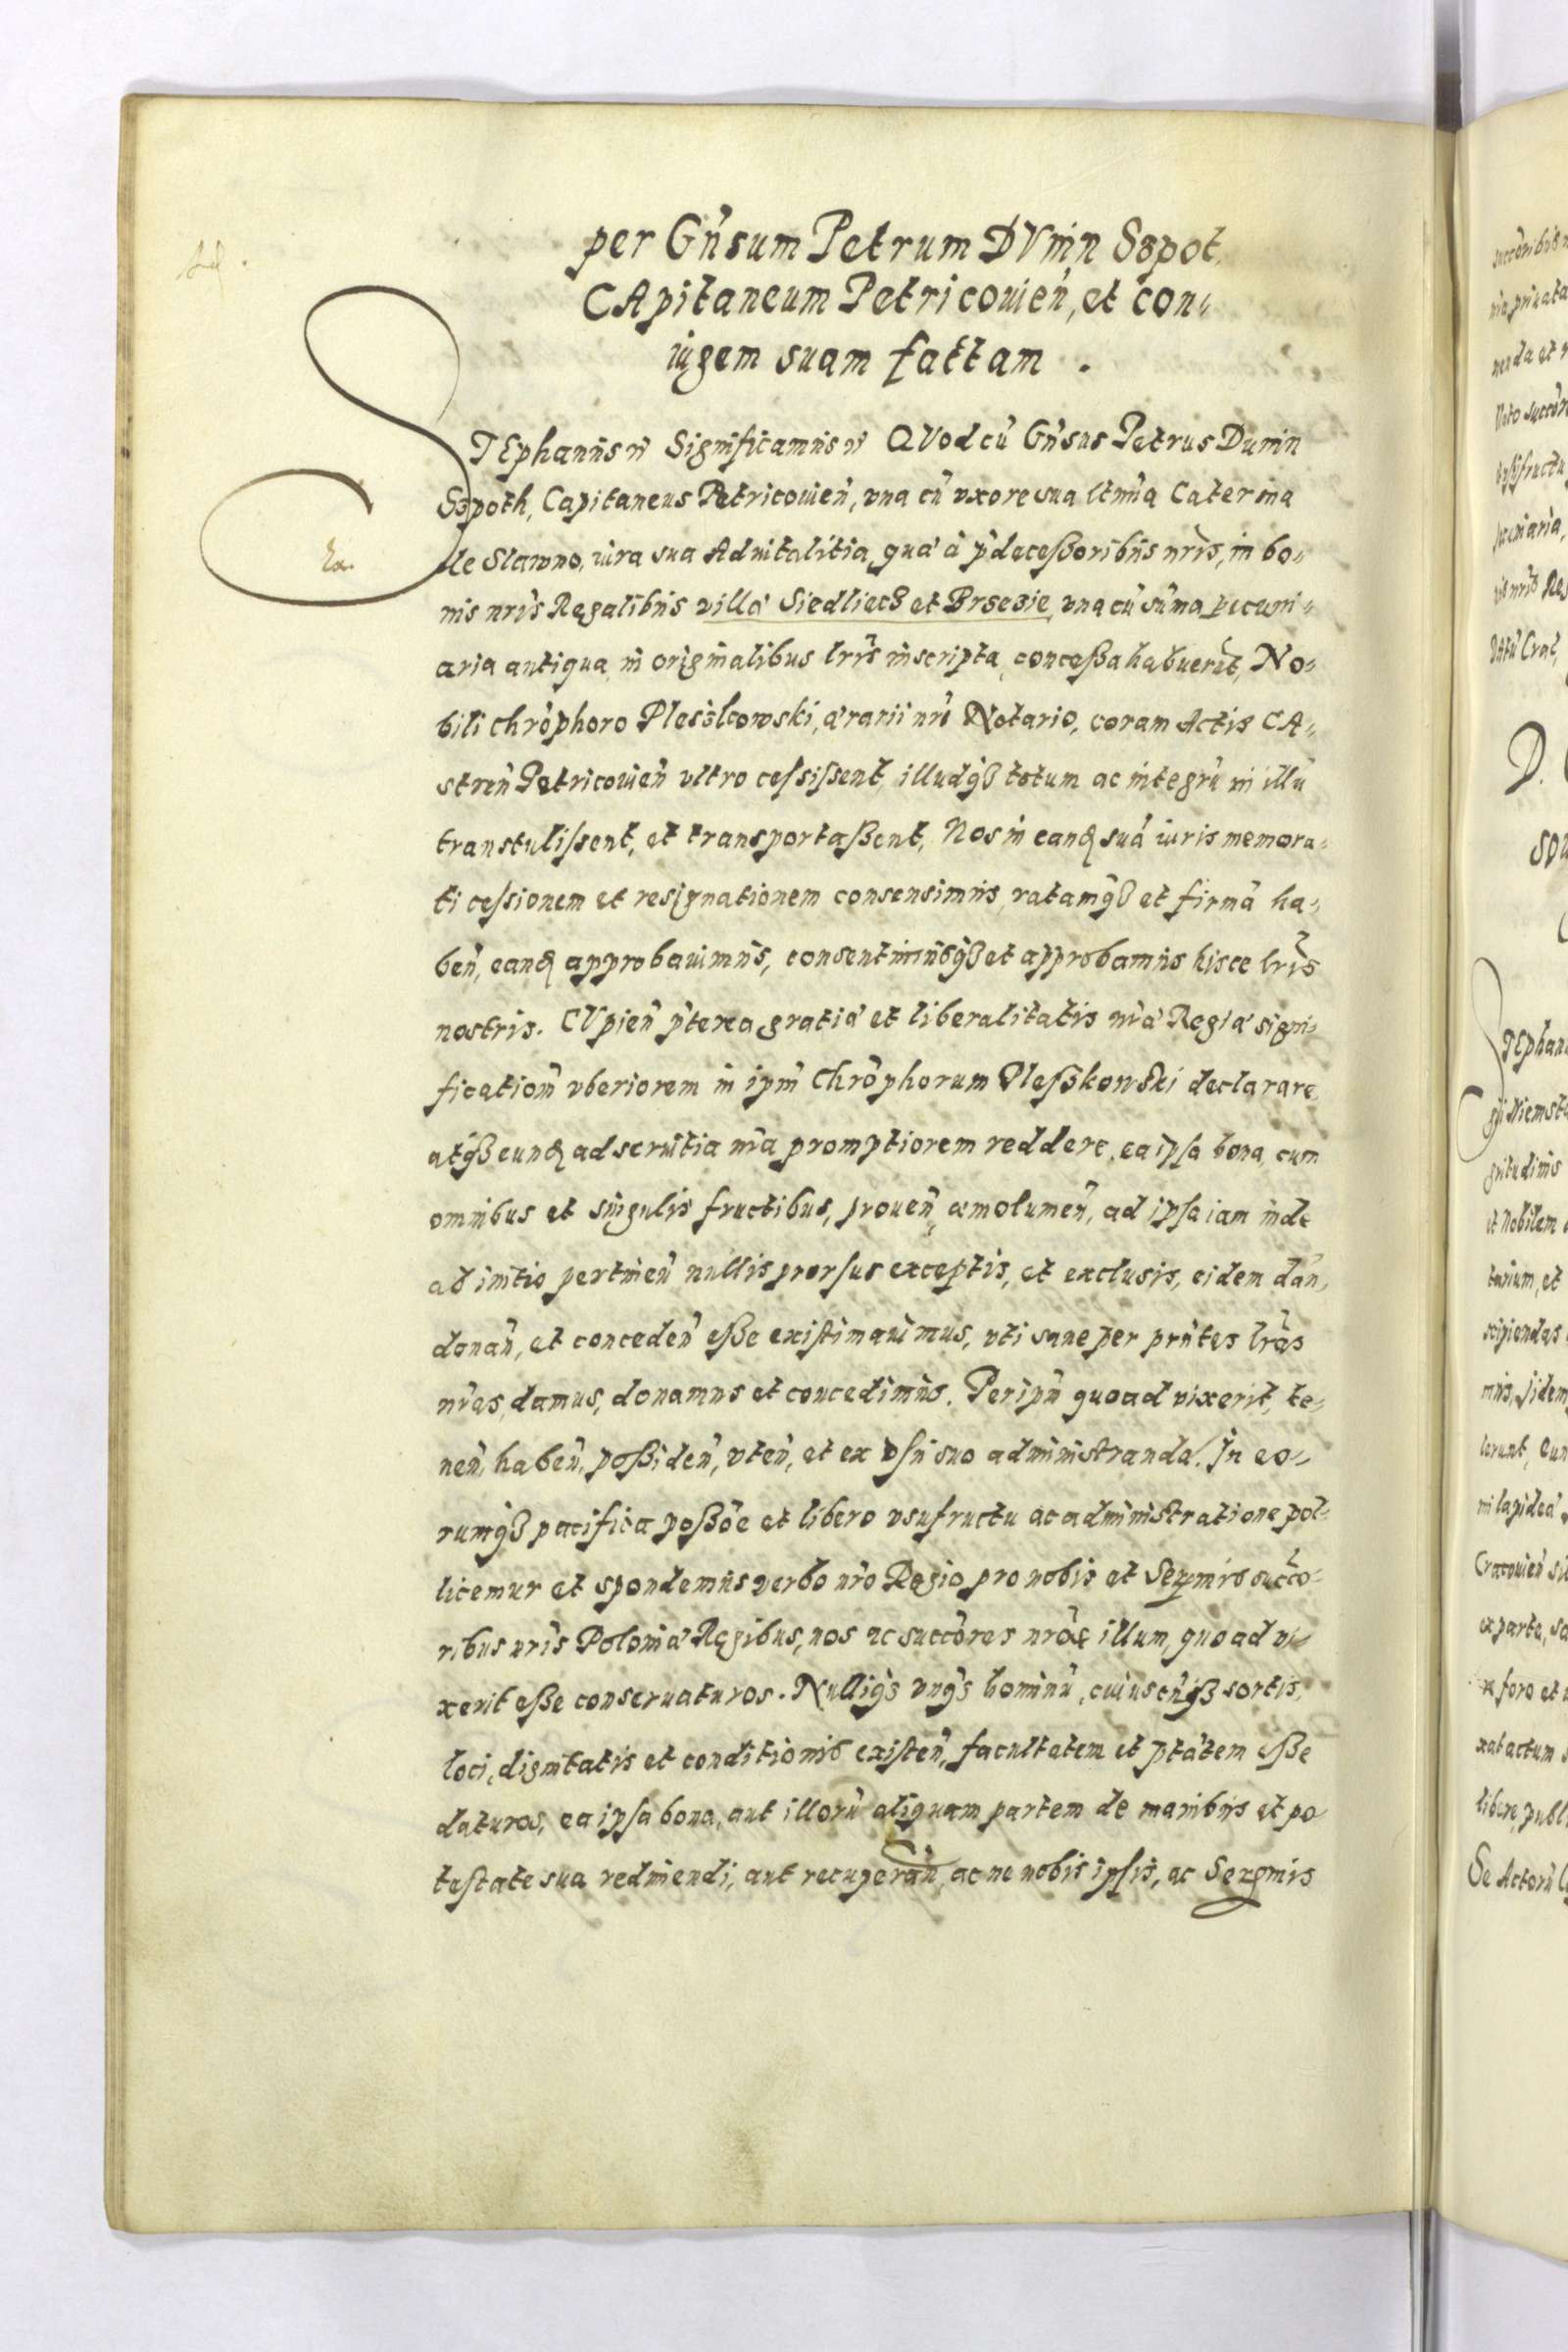 per Gn̄sum Petrum DVnin Sspot
CApitaneum Petricouien̄, et con„
iugem suam factam .
STEphanus ꝛc̄ Significamus ꝛc̄ QVod cū Gn̄sus Petrus Dunin
Sspoth, Capitaneus Petricouien̄, vna cū vxore sua Caterina
de Slawno, iura sua Aduitalitia, quæ à p̄deceßoribus nr̄is, in bo„
nis nr̄is Regalibus villæ Siedliecz et Brzezie, vna cū sūma pecuni„
aria antiqua, in originalibus lr̄is inscripta, conceßa habuerīt, No„
bili Chrōphoro Plesslcowski, ærarii nr̄i Notario, coram Actis CA„
stren̄ Petricouien̄ vltro ceſsiſsent, illudq̄ꝫ totum ac integrū in illū
transtuliſsent, et transportaßent, Nos in eandē suā iuris memora„
ti ceſsionem et resignationem consensimus, ratamq̄ꝫ et firmā ha„
ben̄, eandē approbauimus, consentimusq̄ꝫ et approbamus hisce lr̄is
nostris. CVpien̄ p̄terea gratiæ et liberalitatis nr̄æ Regiæ signi„
ficatiom̄ vberiorem in ipm̄ Chrōphorum Pleſskowski declarare
atq̄ꝫ eundē ad seruitia nr̄a promptiorem reddere, ea ipſa bona, cum
omnibus et singulis fructibus, prouen̄, emolumen̄, ad ipſa iam inde
ab initio pertinen̄ nullis prorſus exceptis, et exclusis, eidem dan̄,
donan̄, et conceden̄ eße exiſtimauimus, vti sane per prn̄tes lr̄as
nr̄as, damus, donamus et concedimus. Per ipm̄ quoad vixerit, te„
nen̄, haben̄, poßiden̄, vten̄, et ex vſu suo administranda. In eo„
rumq̄ꝫ pacifica poßōe et libero vsufructu ac administratione pol„
licemur et spondemus verbo nr̄o Regio pro nobis et Serm̄is succo„
ribus nr̄is Poloniæ Regibus, nos ac succōres nrōs illum, quoad vi„
xerit eße conseruaturos. Nulliq̄ꝫ vnq̄ꝫ hominū, cuiuscūq̄ꝫ sortis,
loci, dignitatis et conditionis exiſten̄, facultatem et ptātem eße
daturos, ea ipſa bona, aut illorū aliquam partem de manibus et po
teſtate sua redimendi, aut recuperan̄, ac ne nobis ipſis, ac Serm̄is